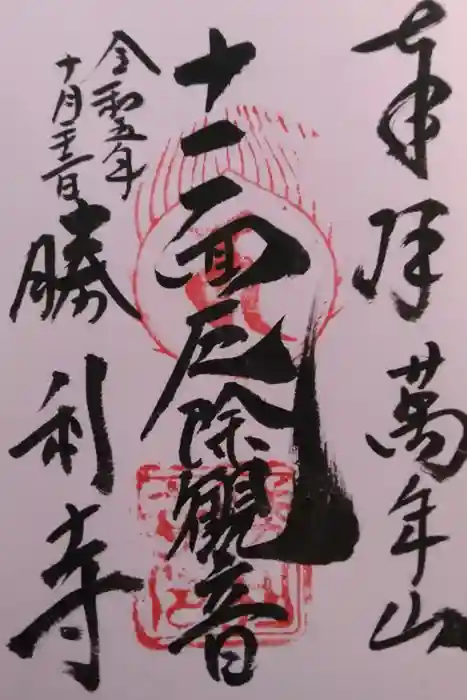 奉拝 萬年山
十一面厄除観音
令和五年
十月二十三日
勝利寺